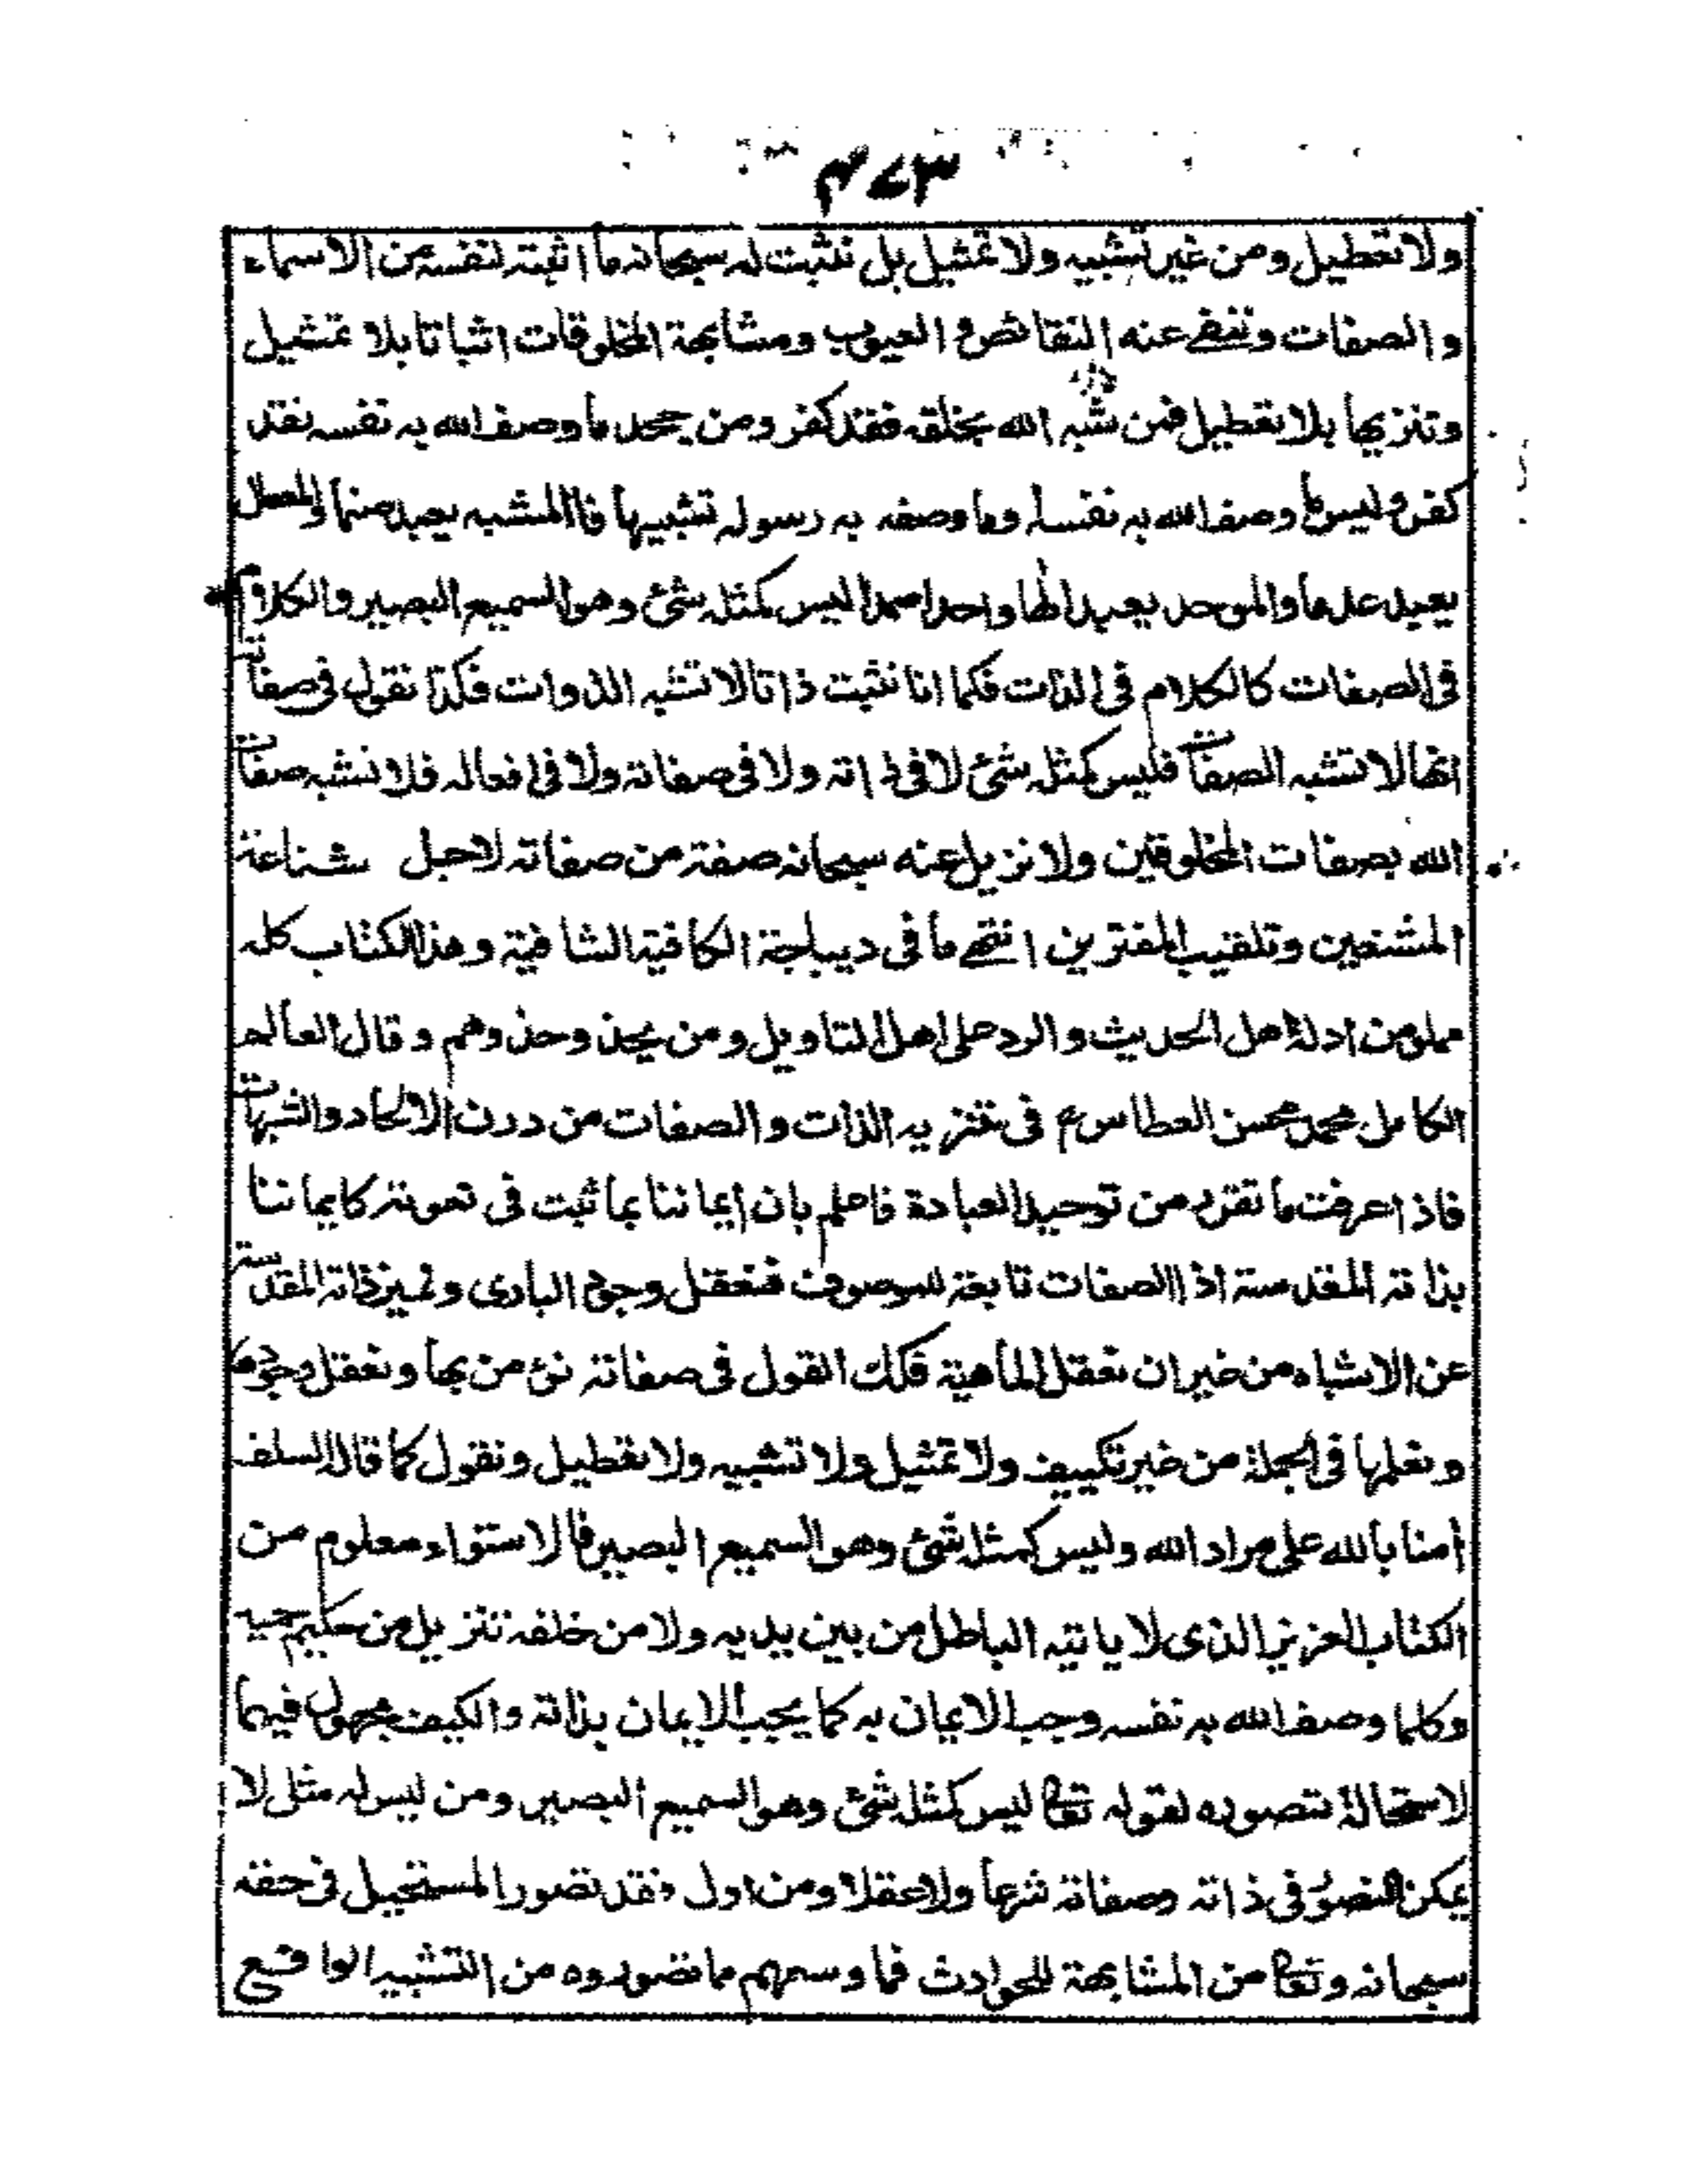 ٤٧٣
ولا تعطيل ومن غير تشبيه ولا تمثيل بل نثبت له سبحانه ما اثبته لنفسه من الاسماء
والصفات وننفے عنه النقائص والعيوب ومشابهة المخلوقات اثباتا بلا تمثيل
وتنزيها بلا تعطيل فمن شبه الله بخلقه فقد كفر ومن جحد ما وصف الله به نفسه فقد
كفر وليس ما وصف الله به نفسه وما وصفه به رسوله تشبيها فالمشبه يعبد صنما والمعطل
يعبد عدما والموحد يعبد الٰها واحدا صمدا ليس كمثله شئ وهو السميع البصير والكلام
فى الصفات كالكلام فى الذات فكما انا نثبت ذاتا لا تشبه الذوات فكذا نقول فى صفاته
انها لا تشبه الصفات فليس كمثله شئ لا فى ذاته ولا فى صفاته ولا فى افعاله فلا نشبه صفات
الله بصفات المخلوقين ولا نزيل عنه سبحانه صفة من صفاته لاجل شناعة
المشنعين وتلقيب المفترين انتهے ما فى ديباجة الكافية الشافية وهذا الكتاب كله
مملو من ادلة اهل الحديث والرد على اهل التاويل ومن يحذو حذوهم وقال العالم
الكامل محمد محسن العطاس فى تنزيه الذات والصفات من درن الالحاد والشبهات
فاذا عرفت ما تقرر من توحيد العبادة فاعلم بان ايماننا بما ثبت فى نعوته كايماننا
بذاته المقدسة اذ الصفات تابعة للموصوف فنعقل وجود البارى ونميز ذاته المقدسة
عن الاشباه من غير ان نعقل الماهية فكك القول فى صفاته نؤمن بها ونعقل وجودها
ونعلمها فى الجملة من غير تكييف ولا تمثيل ولا تشبيه ولا تعطيل ونقول كما قال السلف
امنا بالله على مراد الله وليس كمثله شئ وهو السميع البصير فالاستواء معلوم من
الكتاب العزيز الذى لا ياتيه الباطل من بين يديه ولا من خلفه تنزيل من حكيم حميد
وكلما وصف الله به نفسه وجب الايمان به كما يجب الايمان بذاته والكيف مجهول فيهما
لاستحالة تصوره لقوله تعا ليس كمثله شئ وهو السميع البصير ومن ليس له مثل لا
يمكن التصور فى ذاته وصفاته شرعا ولا عقلا ومن اول فقد تصور المستحيل فى حقه
سبحانه وتعا من المشابهة للحوادث فما وسعهم ما تصوروه من التشبيه الواقع